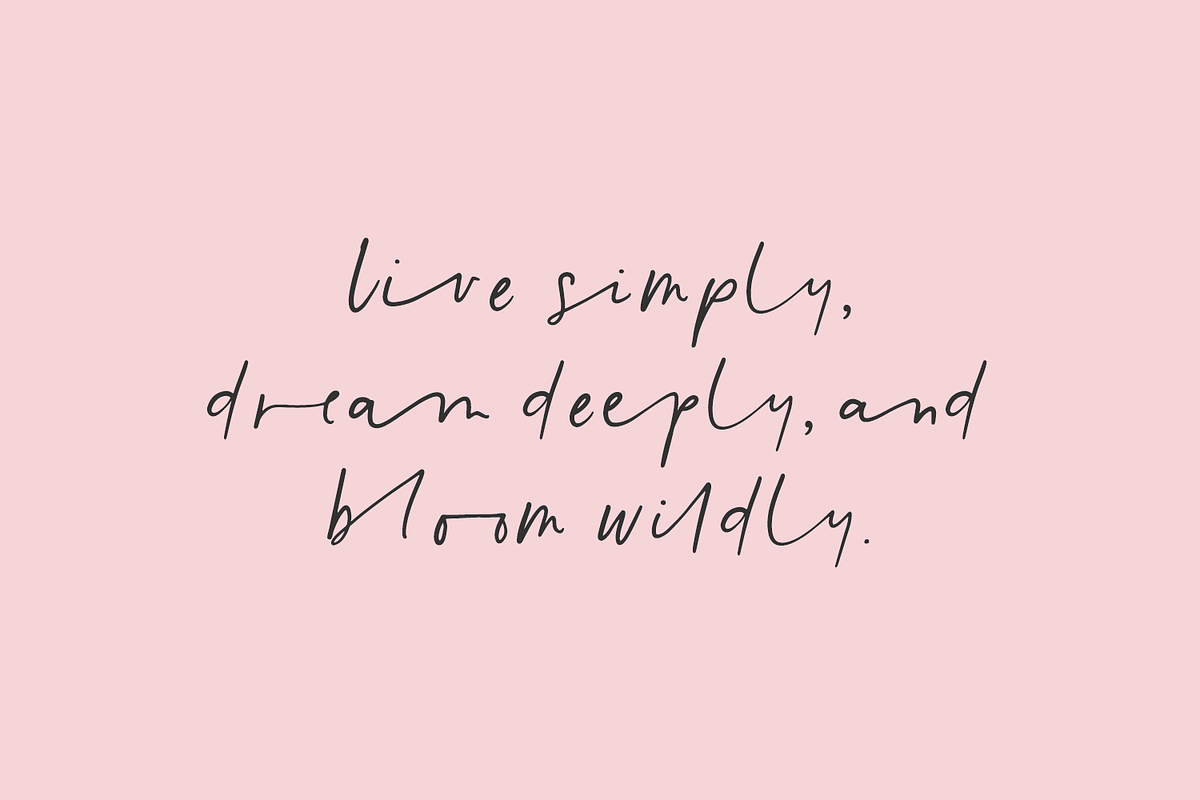 live simply,
dream deeply, and
bloom wildly.